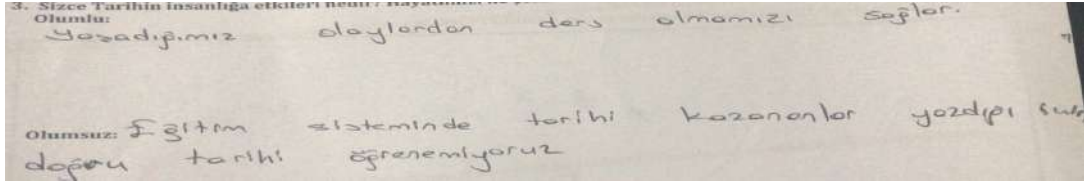 3. Sizce Tarihin insanlığa etkileri nedir?
Olumlu:
Yaşadığımız olaylardan ders almamızı sağlar.
Olumsuz: Eğitim sisteminde tarihi kazananlar yazdığı
doğru tarihi öğrenemiyoruz